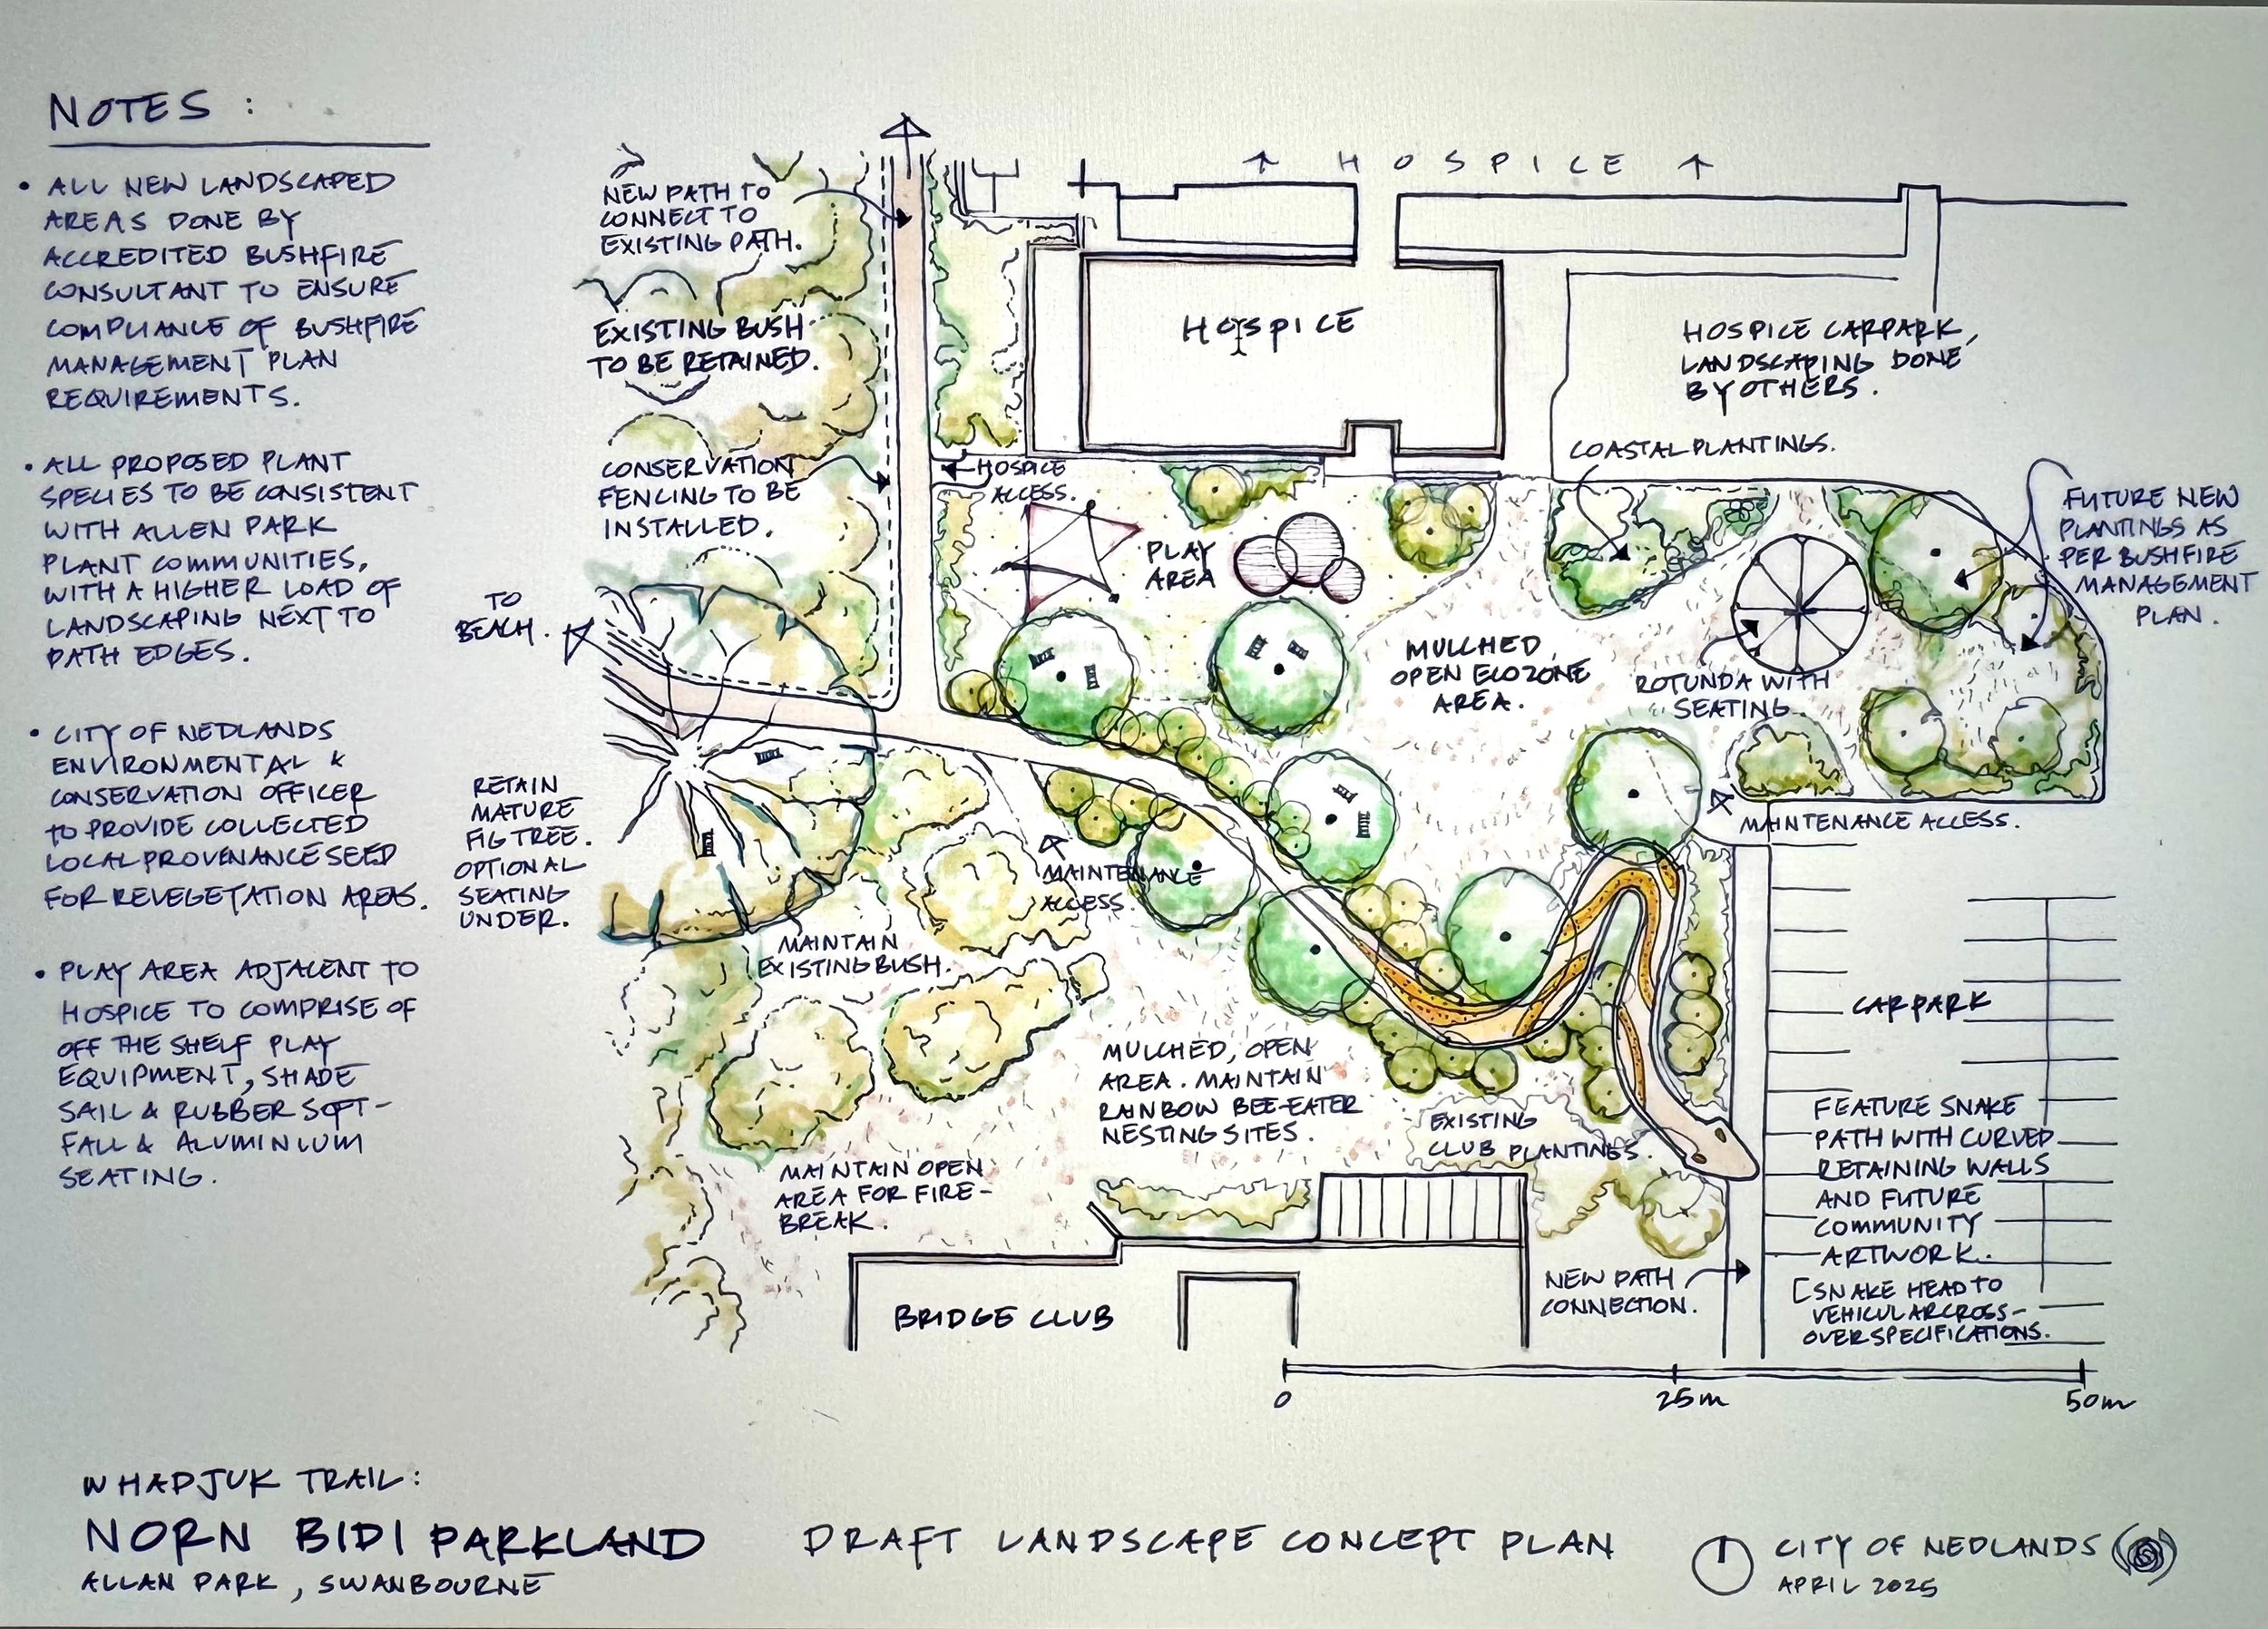 NOTES :
• ALL NEW LANDSCAPED
AREAS DONE BY
ACCREDITED BUSHFIRE
CONSULTANT TO ENSURE
COMPLIANCE OF BUSHFIRE
MANAGEMENT PLAN
REQUIREMENTS.
• ALL PROPOSED PLANT
SPECIES TO BE CONSISTENT
WITH ALLEN PARK
PLANT COMMUNITIES,
WITH A HIGHER LOAD OF
LANDSCAPING NEXT TO
PATH EDGES.
• CITY OF NEDLANDS
ENVIRONMENTAL &
CONSERVATION OFFICER
TO PROVIDE COLLECTED
LOCAL PROVENANCE SEED
FOR REVEGETATION AREAS.
• PLAY AREA ADJACENT TO
HOSPICE TO COMPRISE OF
OFF THE SHELF PLAY
EQUIPMENT, SHADE
SAIL & RUBBER SOFT-
FALL & ALUMINIUM
SEATING.
NEW PATH TO
CONNECT TO
EXISTING PATH.
EXISTING BUSH
TO BE RETAINED.
CONSERVATION
FENCING TO BE
INSTALLED.
TO
BEACH.
RETAIN
MATURE
FIG TREE.
OPTIONAL
SEATING
UNDER.
HOSPICE
HOSPICE
HOSPICE CARPARK,
LANDSCAPING DONE
BY OTHERS.
HOSPICE
ACCESS.
COASTAL PLANTINGS.
FUTURE NEW
PLANTINGS AS
PER BUSHFIRE
MANAGEMENT
PLAN.
PLAY
AREA
MULCHED,
OPEN ECOZONE
AREA.
ROTUNDA WITH
SEATING.
MAINTENANCE ACCESS.
MAINTENANCE
ACCESS.
MAINTAIN
EXISTING BUSH.
CARPARK
MULCHED, OPEN
AREA. MAINTAIN
RAINBOW BEE-EATER
NESTING SITES.
EXISTING
CLUB PLANTINGS.
MAINTAIN OPEN
AREA FOR FIRE-
BREAK.
FEATURE SNAKE
PATH WITH CURVED
RETAINING WALLS
AND FUTURE
COMMUNITY
ARTWORK.
[SNAKE HEAD TO
VEHICULAR CROSS-
OVER SPECIFICATIONS.
NEW PATH
CONNECTION.
BRIDGE CLUB
0 25m 50m
WHADJUK TRAIL:
NORN BIDI PARKLAND
ALLAN PARK, SWANBOURNE
DRAFT LANDSCAPE CONCEPT PLAN
CITY OF NEDLANDS
APRIL 2025